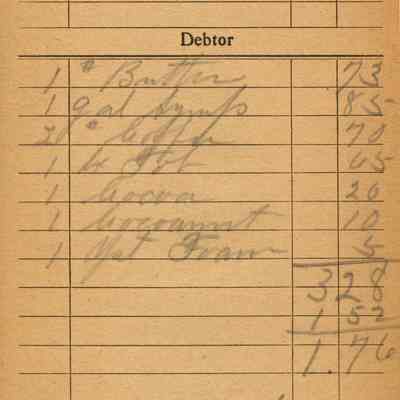 Debtor
1 # Butter 73
1 gal Syrup 85
2 # Coffee 70
1 65
1 Cocoa 20
1 Cocoanut 10
1 Yst Foam 5
328
1 52
1.76